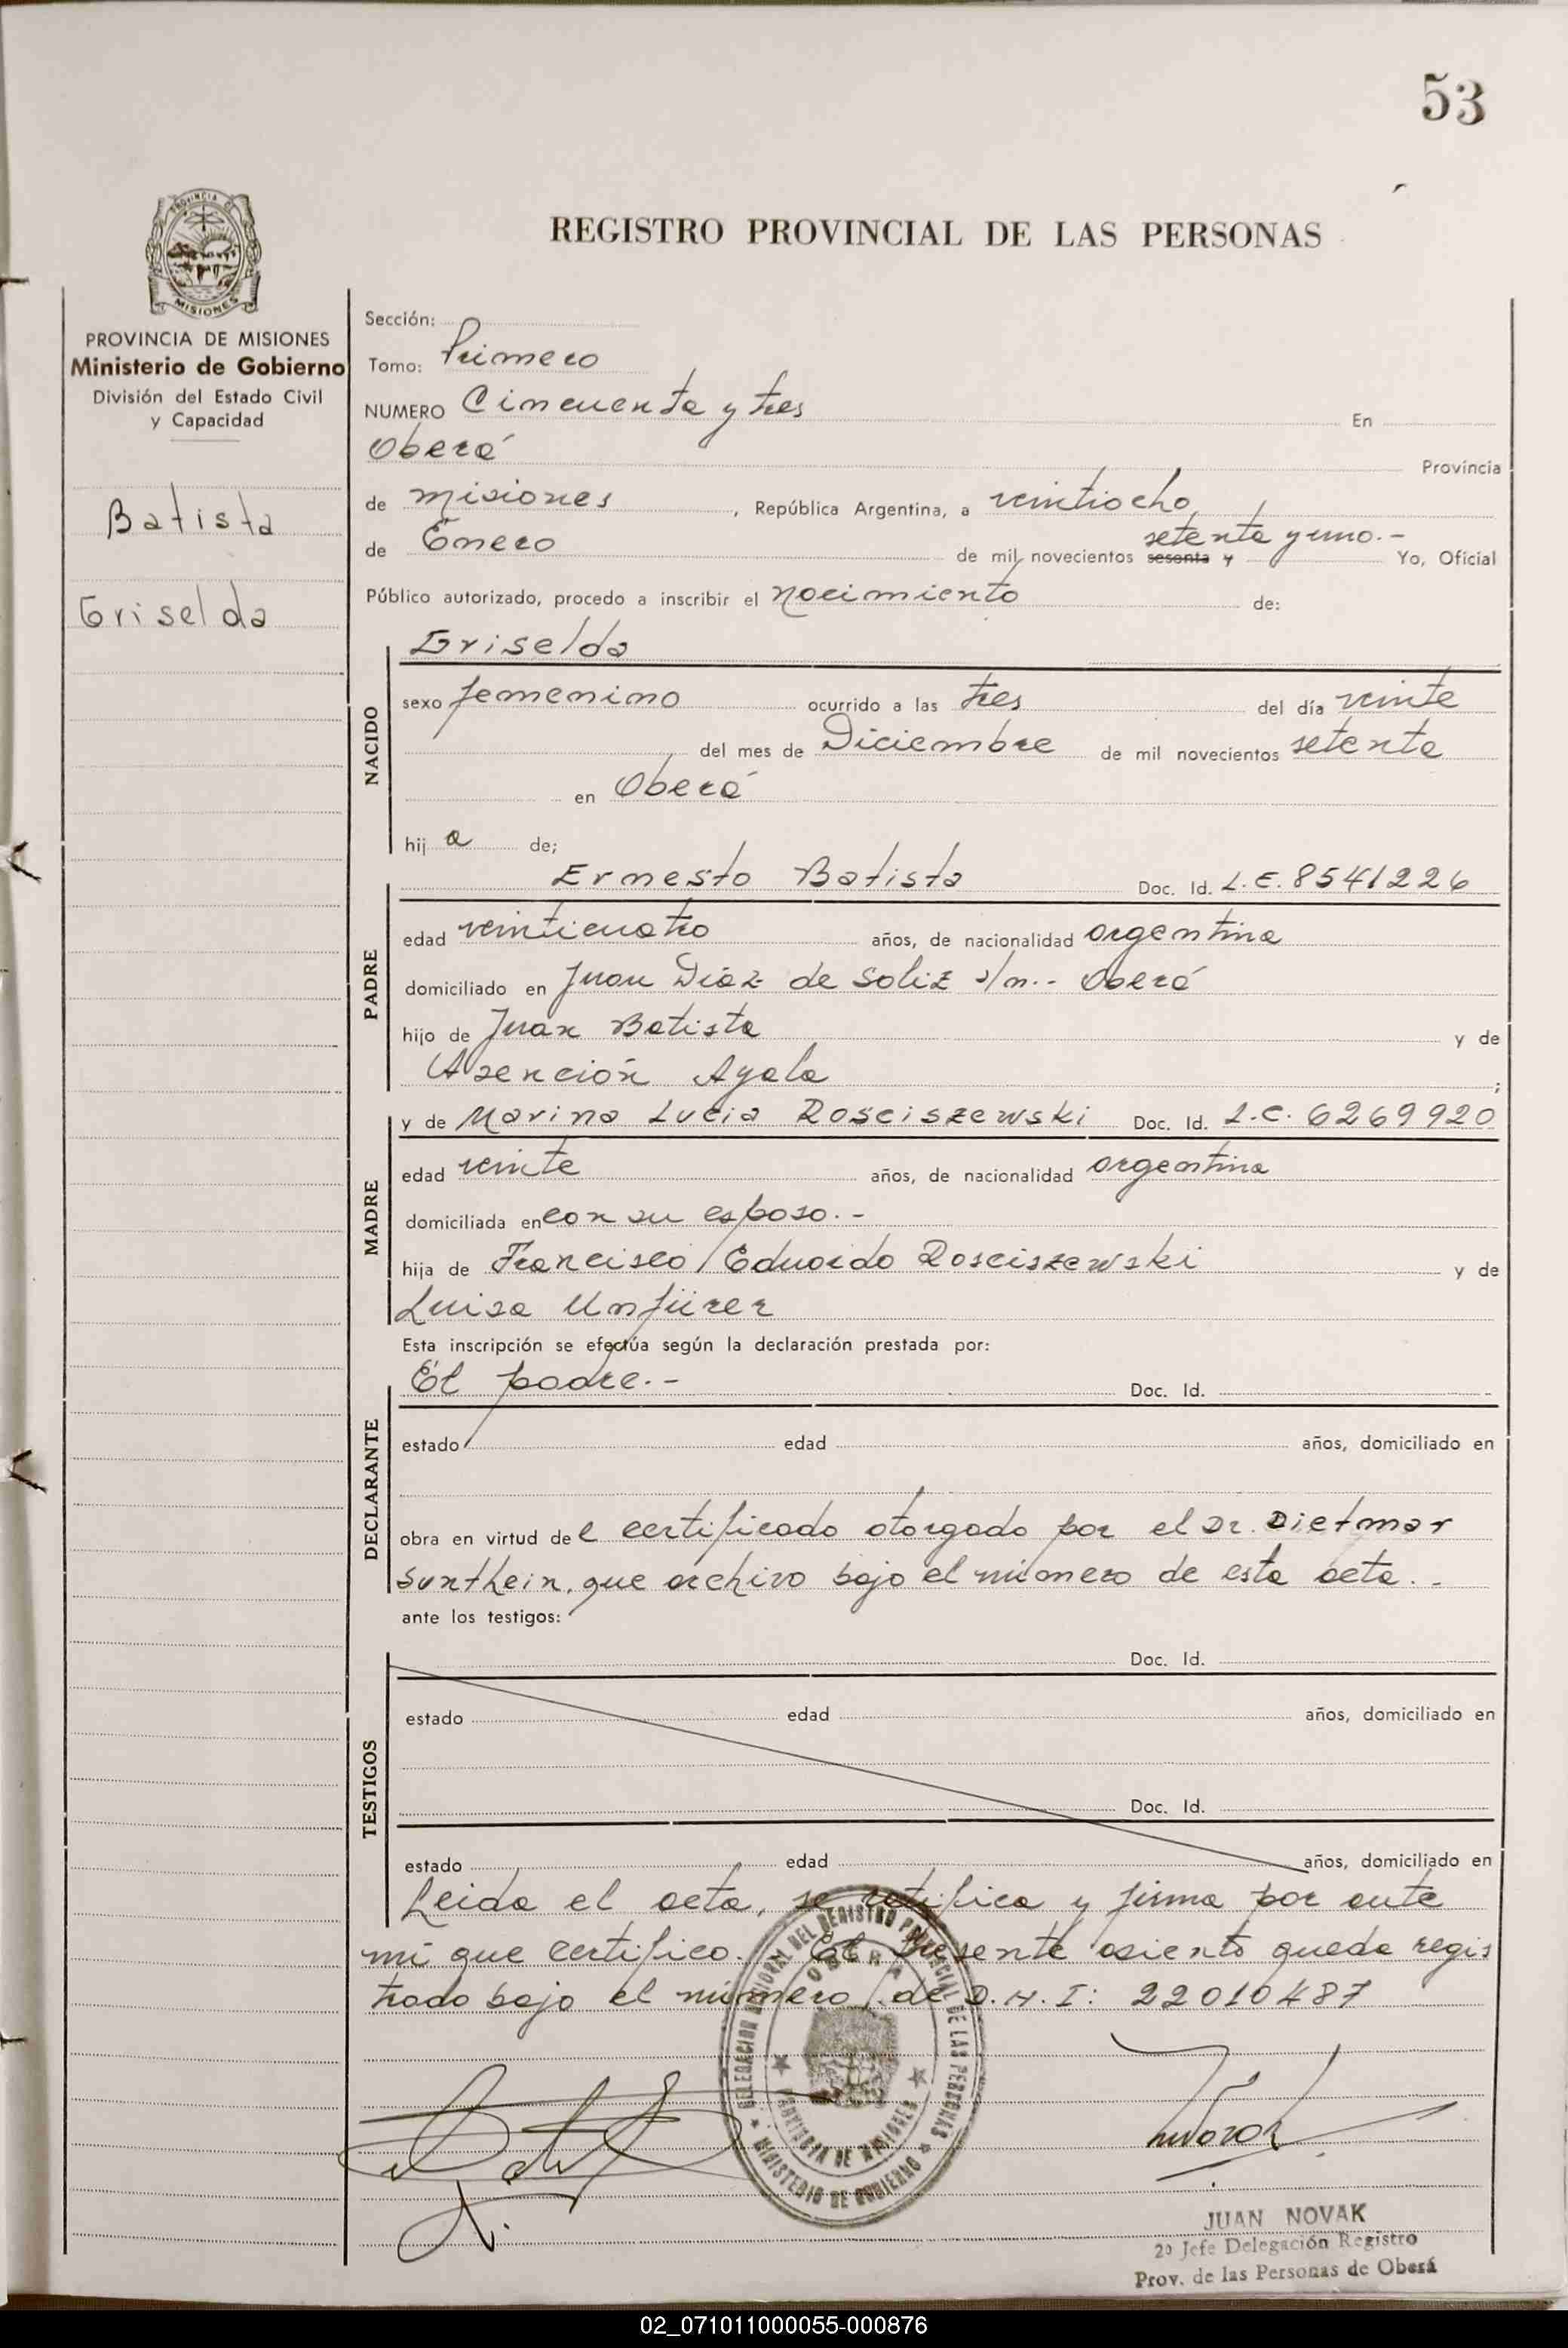 53
REGISTRO PROVINCIAL DE LAS PERSONAS
PROVINCIA DE MISIONES
Ministerio de Gobierno
División del Estado Civil
y Capacidad
Batista
Griselda
Sección:
Tomo: Primero
NUMERO Cincuenta y tres En
Oberá Provincia
de Misiones, República Argentina, a veintiocho
de Enero de mil novecientos sesenta y setenta y uno.- Yo, Oficial
Público autorizado, procedo a inscribir el nacimiento de:
Griselda
NACIDO
sexo femenino ocurrido a las tres del día veinte
del mes de Diciembre de mil novecientos setenta
en Oberá
hij a de;
Ernesto Batista Doc. Id. L.E. 8541226
PADRE
edad veinticuatro años, de nacionalidad argentina
domiciliado en Juan Diaz de Soliz s/n.- Oberá
hijo de Juan Batista y de
Asención Ayala ;
y de Marina Lucia Rosciszewski Doc. Id. L.C. 6269920
MADRE
edad veinte años, de nacionalidad argentina
domiciliada en con su esposo.-
hija de Francisco Eduardo Rosciszewski y de
Luisa Unfürer
Esta inscripción se efectúa según la declaración prestada por:
El padre.- Doc. Id.
DECLARANTE
estado edad años, domiciliado en
obra en virtud del certificado otorgado por el Dr. Dietmar
Sunthein, que archivo bajo el número de esta acta.-
ante los testigos:
Doc. Id.
TESTIGOS
estado edad años, domiciliado en
Doc. Id.
estado edad años, domiciliado en
Leida el acta, se ratifica y firma por ante
mi que certifico. El presente asiento queda regis
trado bajo el número de D.N.I: 22010487
DELEGACION REGIONAL DEL REGISTRO PROVINCIAL DE LAS PERSONAS
OBERA
MINISTERIO DE GOBIERNO
JUAN NOVAK
2º Jefe Delegación Registro
Prov. de las Personas de Oberá
02_071011000055-000876